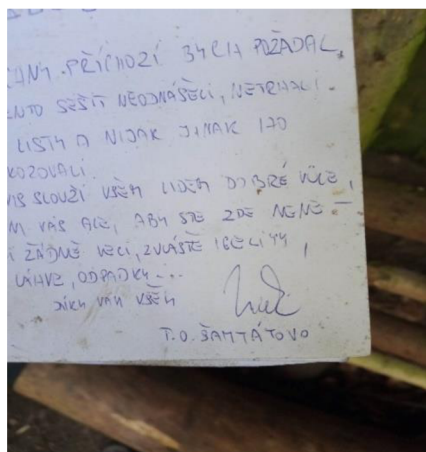 PŘÍCHOZÍ BYCH POŽÁDAL,
SEŠIT NEODNÁŠELI, NETRHALI
LISTY A NIJAK JINAK HO
SLOUŽÍ VŠEM LIDEM DOBRÉ VŮLE,
VÁS ALE, ABY STE ZDE NENE-
ŽÁDNÉ VĚCI, ZVLÁŠTĚ IGELITY,
LÁHVE, ODPADKY...
DÍKY VÁM VŠEM
T.O. ŠAMTÁTOVO